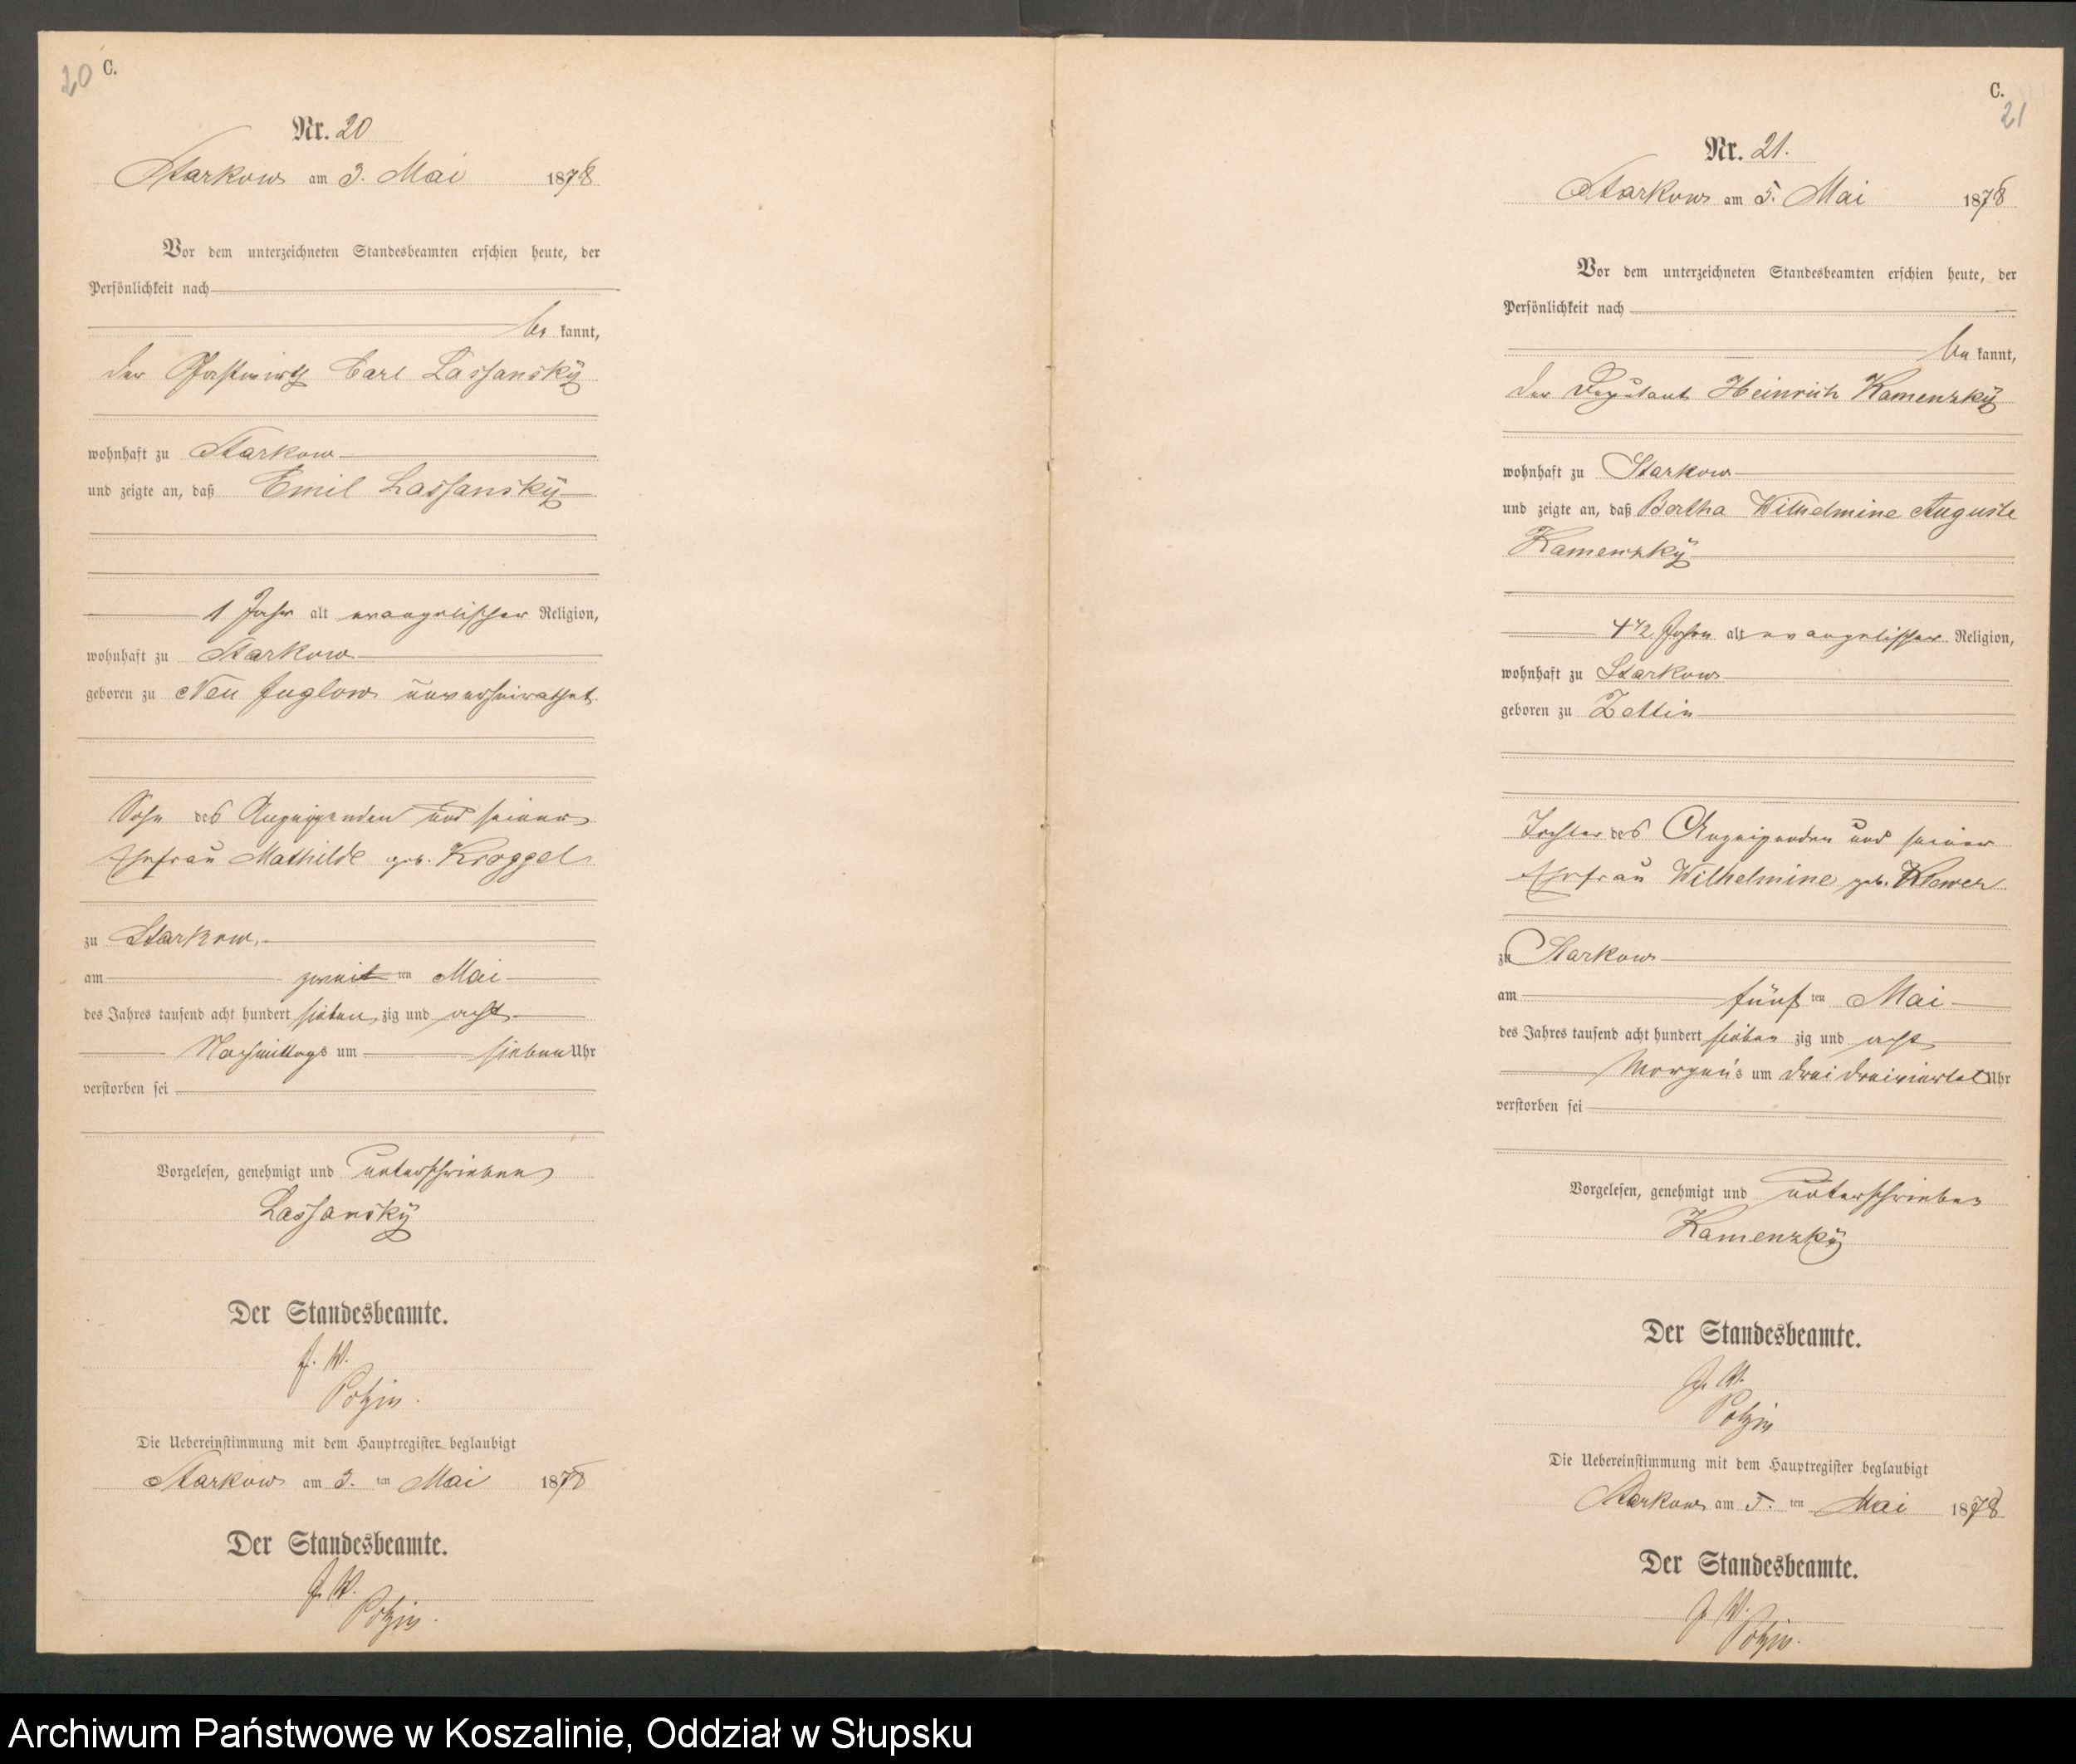 20 C.
Nr. 20
Starkow am 3. Mai 1878
Vor dem unterzeichneten Standesbeamten erschien heute, der
Persönlichkeit nach
be kannt,
der Gastwirth Carl Lassansky
wohnhaft zu Starkow
und zeigte an, daß Emil Lassansky
1 Jahr alt evangelischer Religion,
wohnhaft zu Starkow
geboren zu Neu Juglow unverheirathet
Sohn des Anzeigenden und seiner
Ehefrau Mathilde geb. Kroggel
zu Starkow.
am zweit ten Mai
des Jahres tausend acht hundert sieben zig und acht
Nachmittags um sieben Uhr
verstorben sei
Vorgelesen, genehmigt und unterschrieben
Lassansky
Der Standesbeamte.
J. V.
Potzin.
Die Uebereinstimmung mit dem Hauptregister beglaubigt
Starkow am 3. ten Mai 1878
Der Standesbeamte.
J. V.
Potzin.
C.
21
Nr. 21.
Starkow am 5. Mai 1878
Vor dem unterzeichneten Standesbeamten erschien heute, der
Persönlichkeit nach
be kannt,
der Deputant Heinrich Kamenzky
wohnhaft zu Starkow
und zeigte an, daß Bertha Wilhelmine Auguste
Kamenzky
4 1/2 Jahre alt evangelischer Religion,
wohnhaft zu Starkow
geboren zu Zettin
Tochter des Anzeigenden und seiner
Ehefrau Wilhelmine geb. Klewer
zu Starkow
am fünf ten Mai
des Jahres tausend acht hundert sieben zig und acht
Morgens um drei dreiviertel Uhr
verstorben sei
Vorgelesen, genehmigt und unterschrieben
Kamenzky
Der Standesbeamte.
J. V.
Potzin
Die Uebereinstimmung mit dem Hauptregister beglaubigt
Starkow am 5. ten Mai 1878
Der Standesbeamte.
J. V.
Potzin.
Archiwum Państwowe w Koszalinie, Oddział w Słupsku